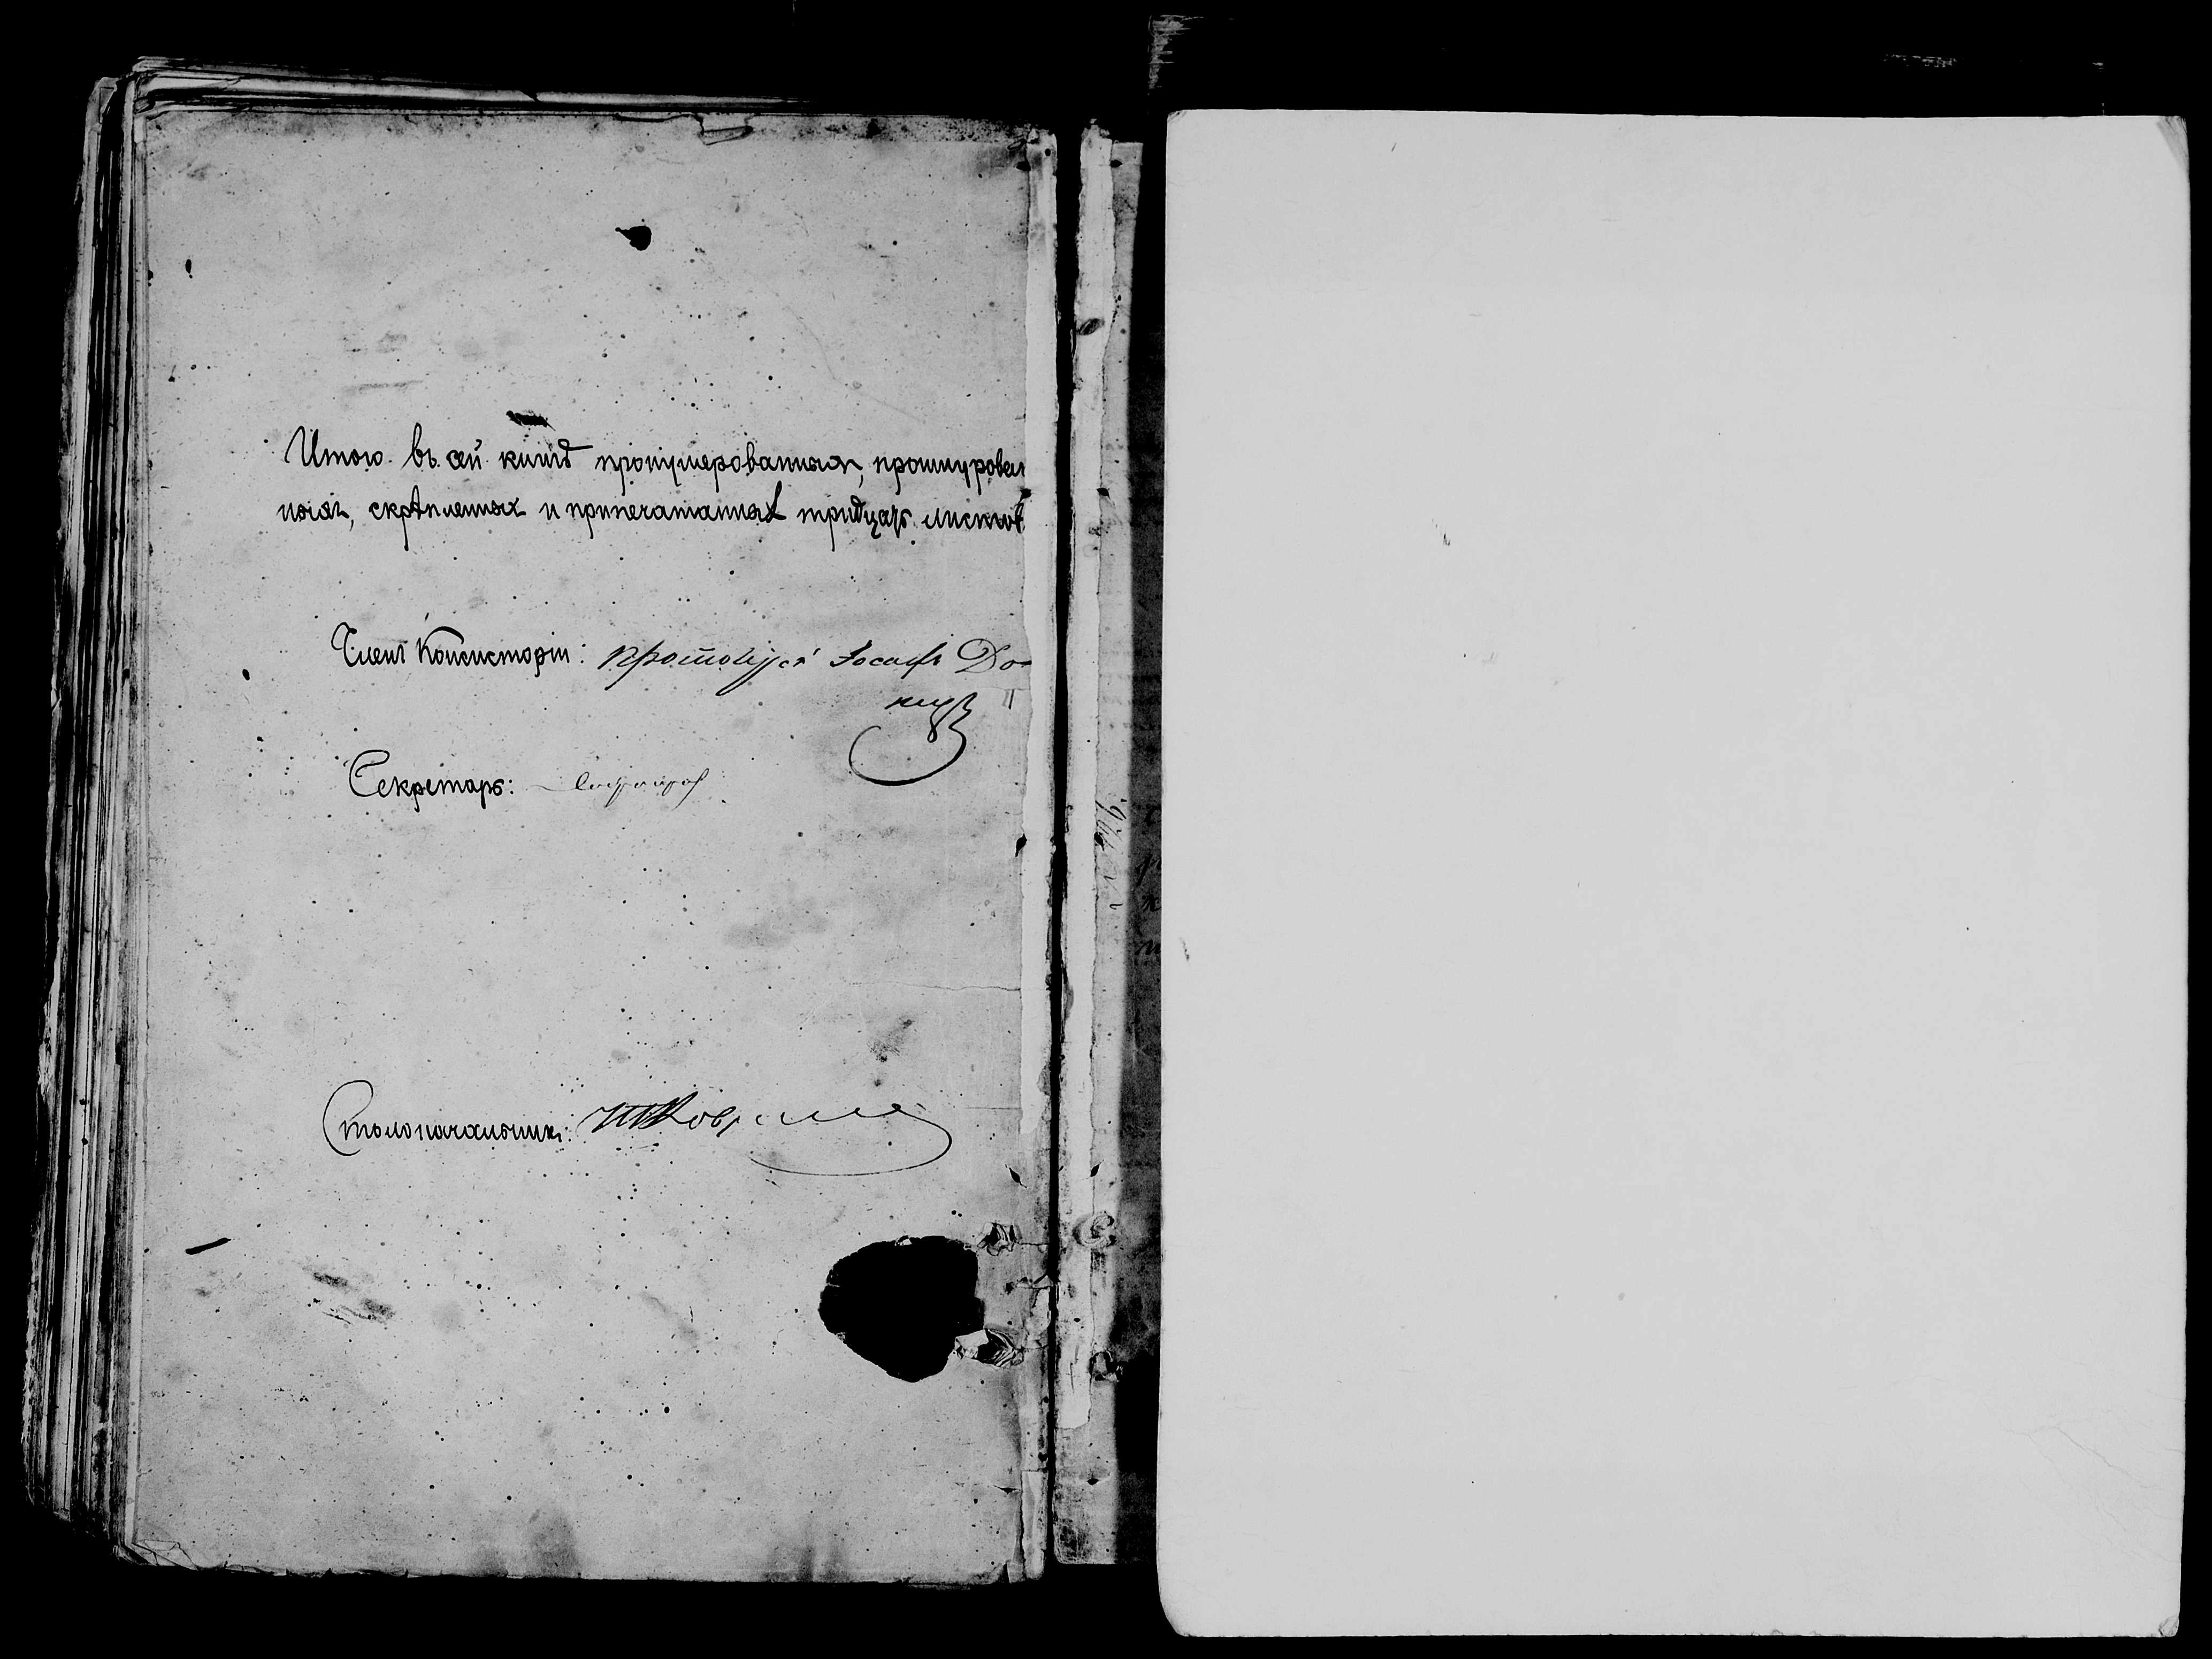 Итого въ сей книгѣ пронумерованныхъ, прошнурован
ныхъ, скрѣпленныхъ и припечатанныхъ тридцать листов
Членъ Консисторіи: Протоіерей Іосифъ
Секретарь:
Столоначальникъ: